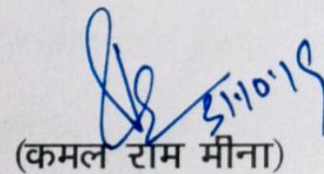 31.10.19
(कमल राम मीना)